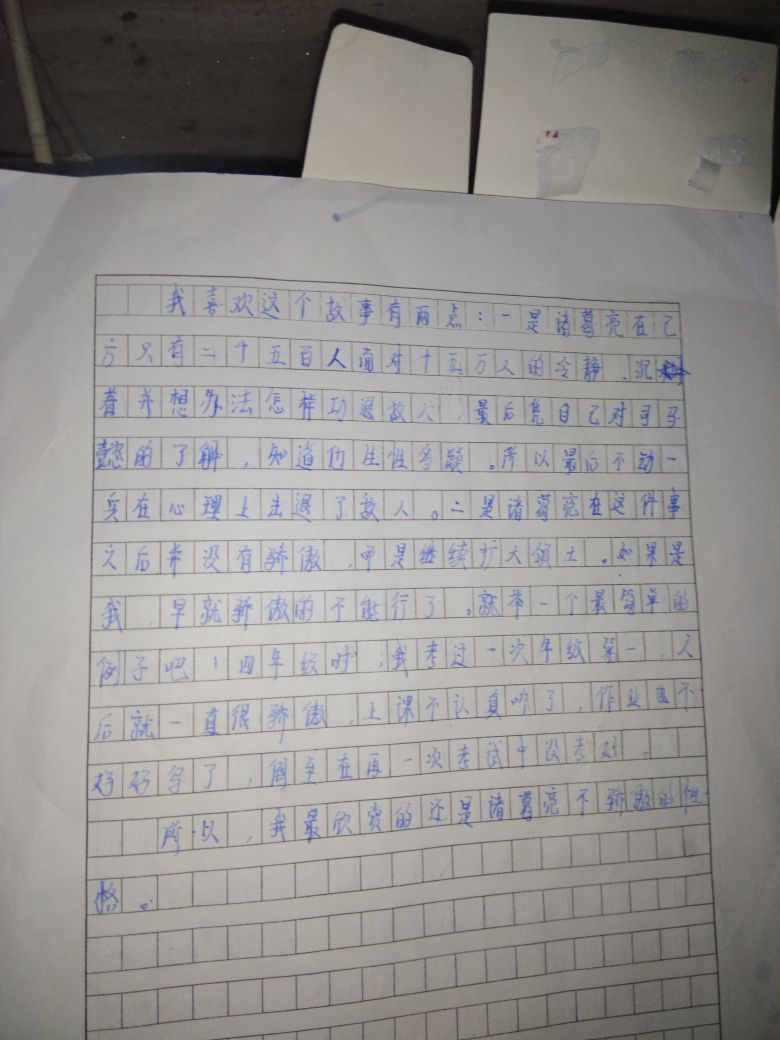 我喜欢这个故事有两点：一是诸葛亮在己
方只有二千五百人面对十五万人的冷静、沉
着并想办法怎样功退敌人，最后凭自己对司马
懿的了解，知道他生性多疑。所以最后不动一
兵在心理上击退了敌人。二是诸葛亮在这件事
之后并没有骄傲，而是继续扩大领土。如果是
我，早就骄傲的不能行了。就举一个最简单的
例子吧！四年级时，我考过一次年级第一，之
后就一直很骄傲，上课不认真听了，作业也不
好好写了，倒至在再一次考试中没考好。
所以，我最欣赏的还是诸葛亮不骄傲的性
格。